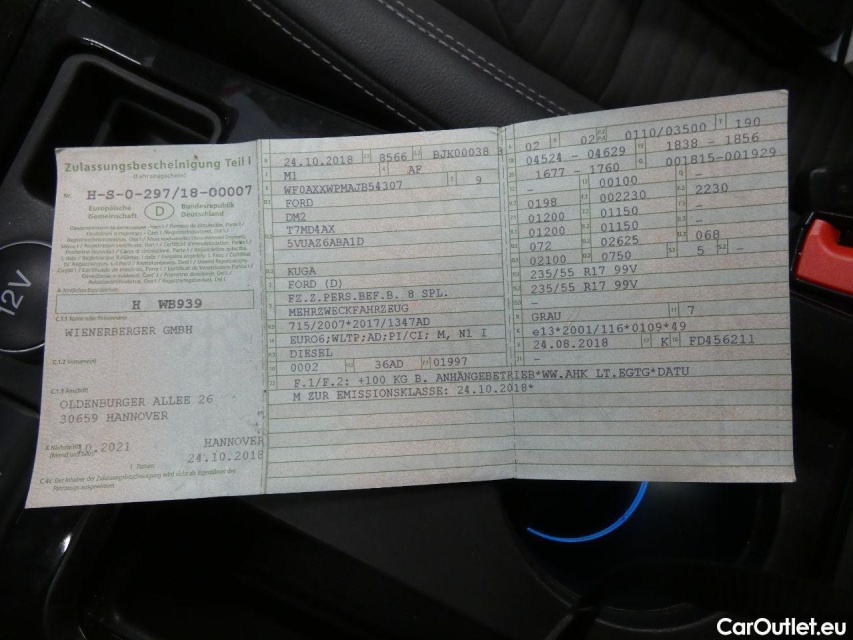 12V
Zulassungsbescheinigung Teil I
(Fahrzeugschein)
Nr. H-S-0-297/18-00007
Europäische Gemeinschaft D Bundesrepublik Deutschland
H WB939
C.1.1 Name oder Firmenname
WIENERBERGER GMBH
C.1.2 Vorname(n)
C.1.3 Anschrift
OLDENBURGER ALLEE 26
30659 HANNOVER
10.2021
HANNOVER
24.10.2018
C.4c Der Inhaber der Zulassungsbescheinigung wird nicht als Eigentümer des Fahrzeugs ausgewiesen.
24.10.2018 8566 BJK00038
M1 AF
WF0AXXWPMAJB54307 9
FORD
DM2
T7MD4AX
5VUAZ6ABA1D
KUGA
FORD (D)
FZ.Z.PERS.BEF.B. 8 SPL.
MEHRZWECKFAHRZEUG
715/2007*2017/1347AD
EURO6;WLTP;AD;PI/CI; M, N1 I
DIESEL
0002 36AD 01997
F.1/F.2: +100 KG B. ANHÄNGEBETRIEB*WW.AHK LT.EGTG*DATU
M ZUR EMISSIONSKLASSE: 24.10.2018*
02 02 0110/03500 190
04524 - 04629 1838 - 1856
1677 - 1760 001815-001929
- 00100 -
0198 002230 2230
01200 01150 -
01200 01150 -
072 02625 068
02100 0750 5 -
235/55 R17 99V
235/55 R17 99V
-
GRAU 7
e13*2001/116*0109*49
24.08.2018 K FD456211
-
CarOutlet.eu